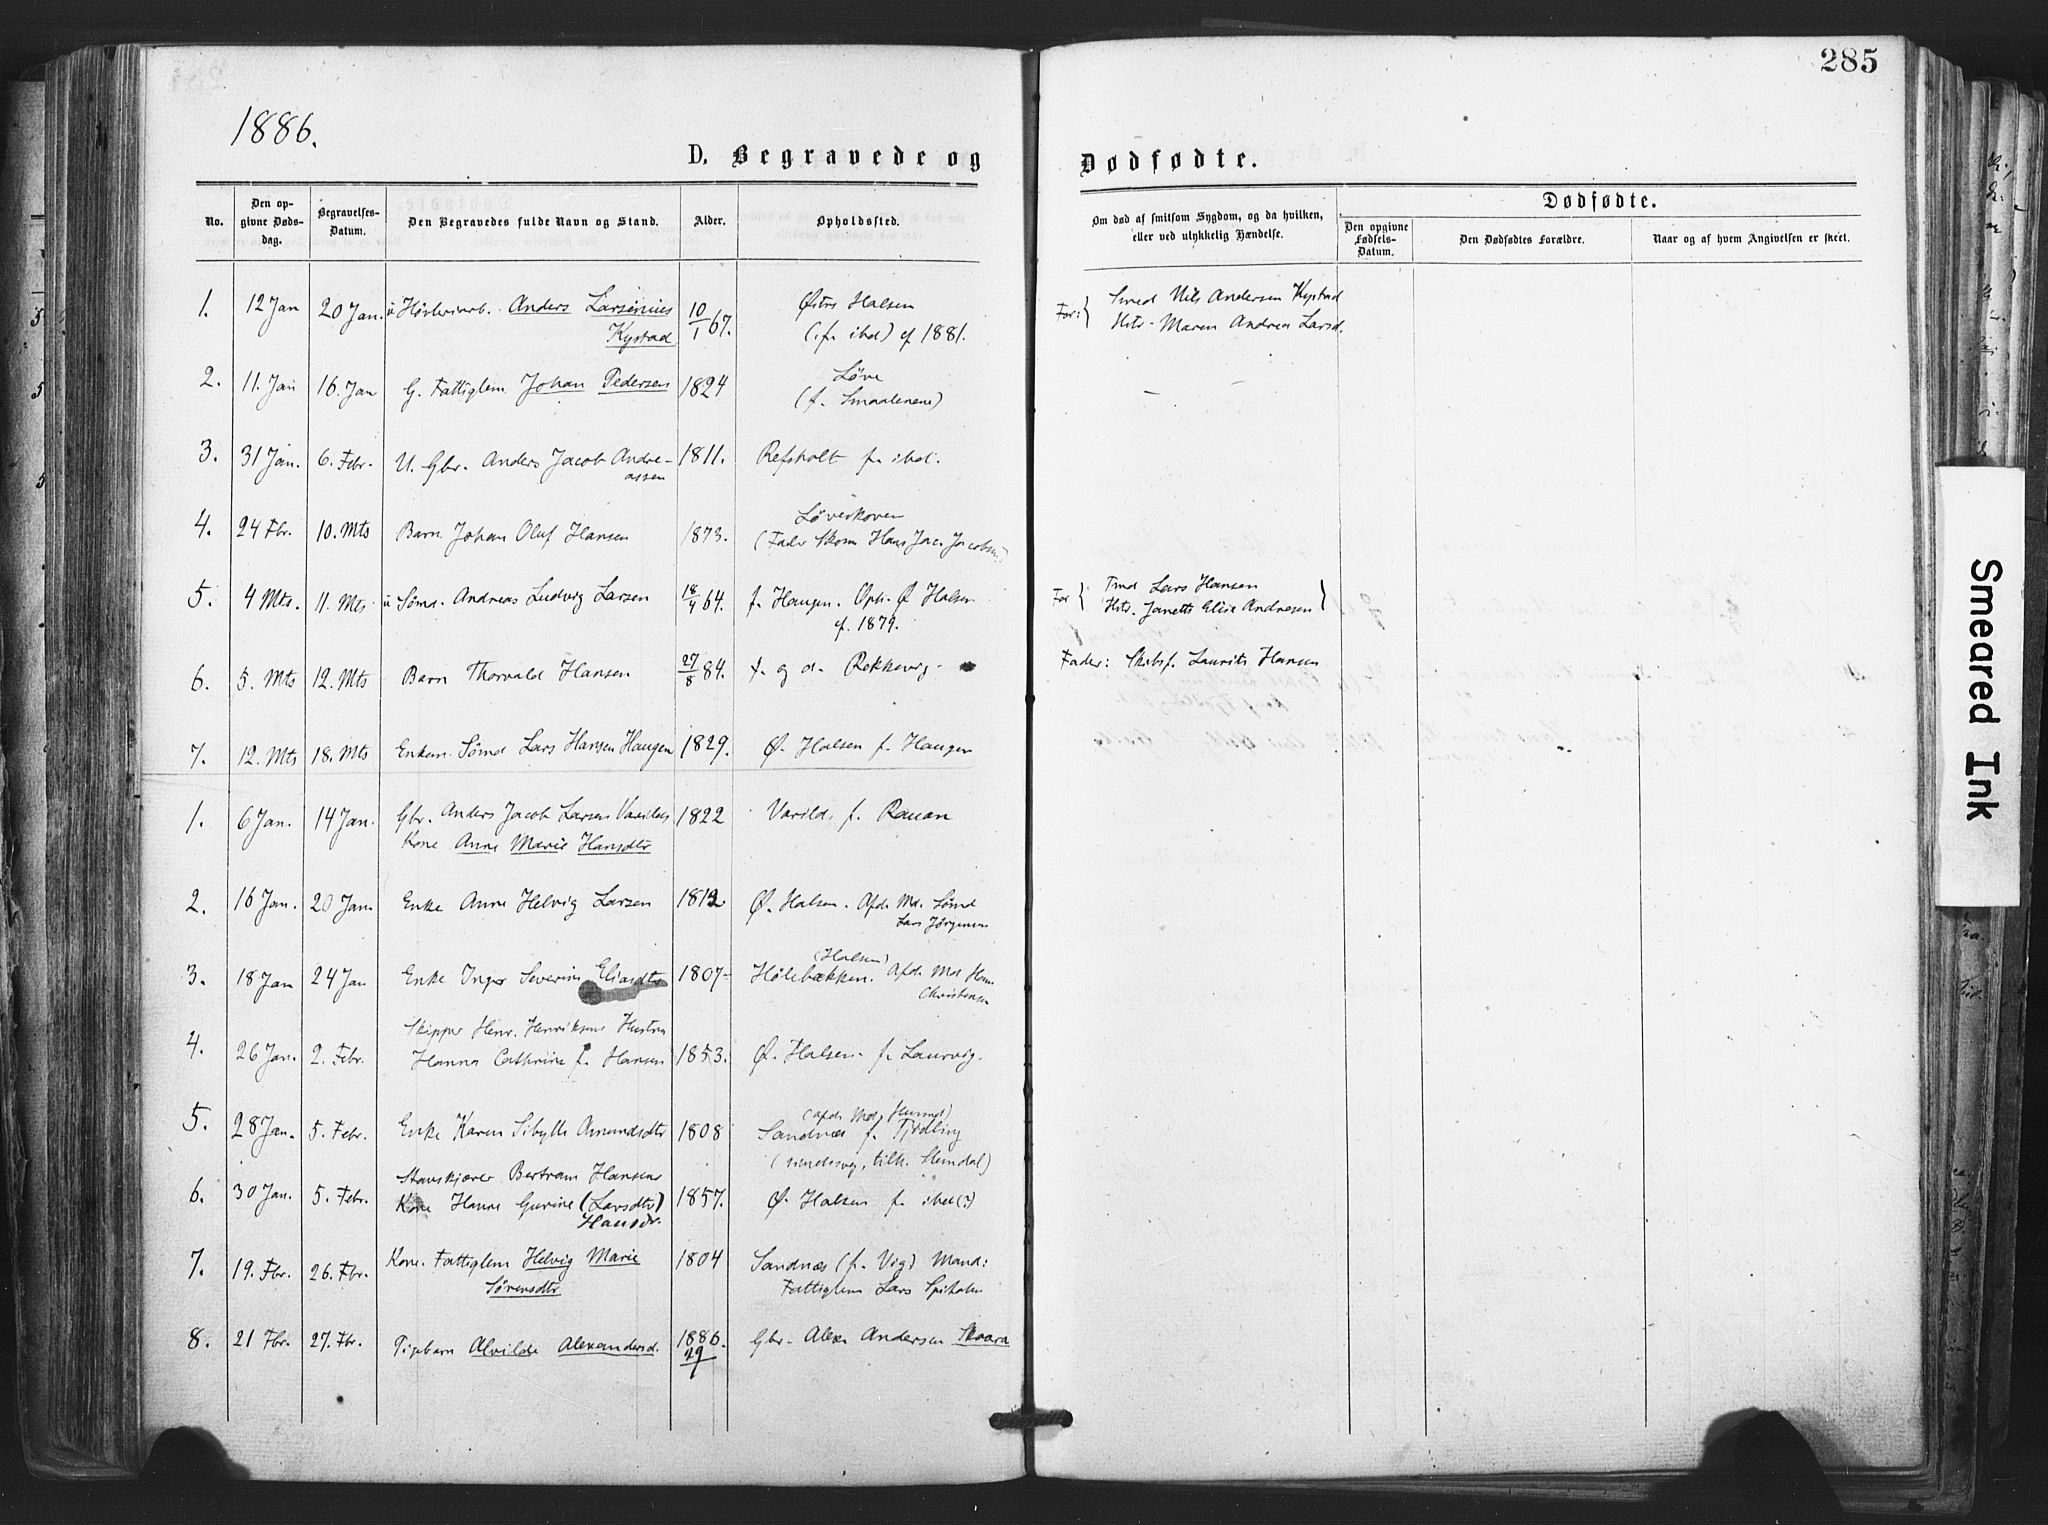 285
1886.
D. Begravede og Dødfødte.
No.
Den opgivne Dødsdag.
Begravelses-Datum.
Den Begravedes fulde Navn og Stand.
Alder.
Opholdssted.
Om død af smitsom Sygdom, og da hvilken, eller ved ulykkelig Hændelse.
Dødfødte.
Den opgivne Fødsels-Datum.
Den Dødfødtes Forældre.
Naar og af hvem Angivelsen er skeet.
1. 12 Jan 20 Jan. Anders Larsenius Kystad 10/1 67. Østre Halsen (f. ibd) cf 1881. For: { Smed Nils Andersen Kystad
Hstr. Maren Andrea Larsd.
2. 11. Jan 16 Jan G. Fattiglem Johan Pedersen 1824 Løve
(f. Smaalenene) –
3. 31 Jan. 6. Febr. U. Gbr. Anders Jacob Andreassen 1811. Refsholt f. ibd.
4. 24 Fbr. 10. Mts Barn Johan Oluf Hansen 1873. Løveskoven
(Fader Skom Hans Jac. Jacobsen)
5. 4 Mts. 11. Mts u Sømd. Andreas Ludvig Larsen 18/4 64. f. Haugen. Oph. Ø Halsen
cf. 1879. For { Tmd Lars Hansen
Hstr. Janette Elise Andresen }
6. 5. Mts 12. Mts Barn Thorvald Hansen 27/8 84. f. og d. Rekkevig. Fader: Skibsf. Laurits Hansen
7. 12. Mts 18. Mts Enkem. Sømd Lars Hansen Haugen 1829. Ø. Halsen f. Haugen
1. 6 Jan. 14 Jan. Gbr. Anders Jacob Larsen Varilds
Kone Anne Marie Hansdtr 1822 Varild. f. Rauan
2. 16 Jan. 20 Jan. Enke Anne Helvig Larsen 1812 Ø. Halsen. Afd. Md. Sømd
Lars Jørgensen
3. 18 Jan 24 Jan Enke Inger Severine Eliasdtr 1807 (Halsen)
Holebækken. Afd. Md Hans
Christensen
4. 26 Jan. 2. Febr. Skipper Henr. Henriksens Hustru
Hanna Cathrine f. Hansen 1853. Ø. Halsen f. Laurvig.
5. 28 Jan. 5. Febr. Enke Karen Sibylle Amundsdtr 1808 (afd. Md, Husmd)
Sandnæs f. Tjødling
6. 30 Jan. 5. Febr. Bertram Hansens
Kone Hanne Gurine (Larsdtr)
Hansdr. 1857. Ø. Halsen f. ibd(?)
7. 19. Fbr. 26. Fbr. Kone. Fattiglem Helvig Marie
Sørensdtr 1804 Sandnæs (f. Vig) Mand:
Fattiglem Lars
8. 21 Fbr. 27. Fbr. Pigebarn Alvilde Alexandersd. 1886. 29/1 Gbr. Alex Andersen Skaara
Smeared Ink